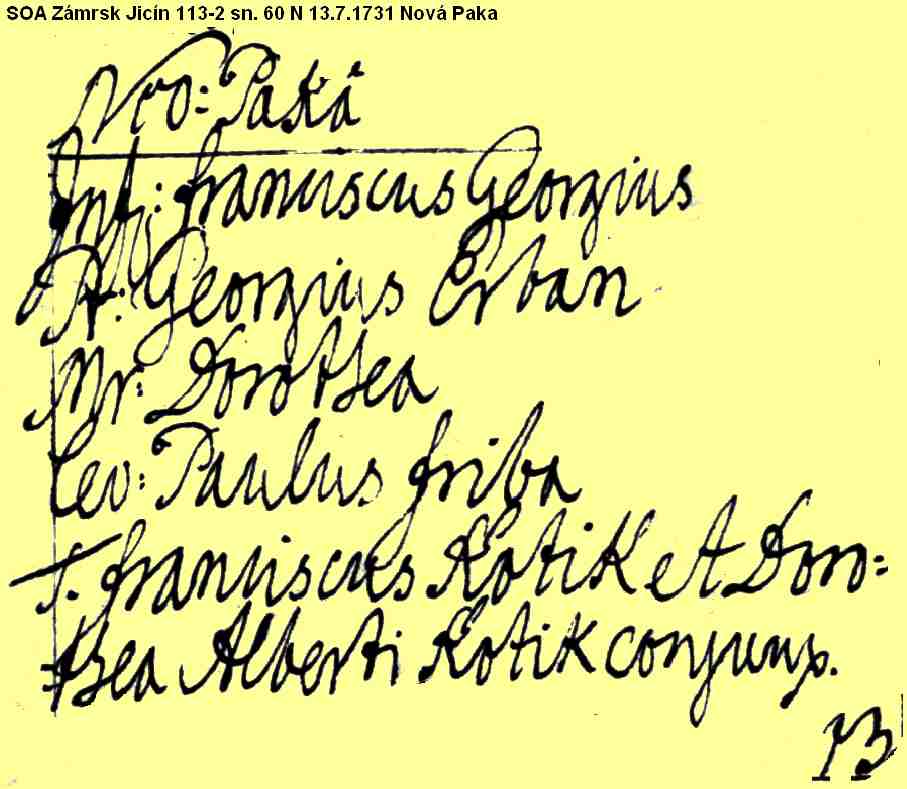 SOA Zámrsk Jicín 113-2 sn. 60 N 13.7.1731 Nová Paka
Neo: Paká
Inf: Franciscus Georgius
Pr: Georgius Erban
Mr: Dorothea
Lev: Paulus Friba
T. Franciscus Kotik et Doro=
thea Alberti Kotik conjunx.
13